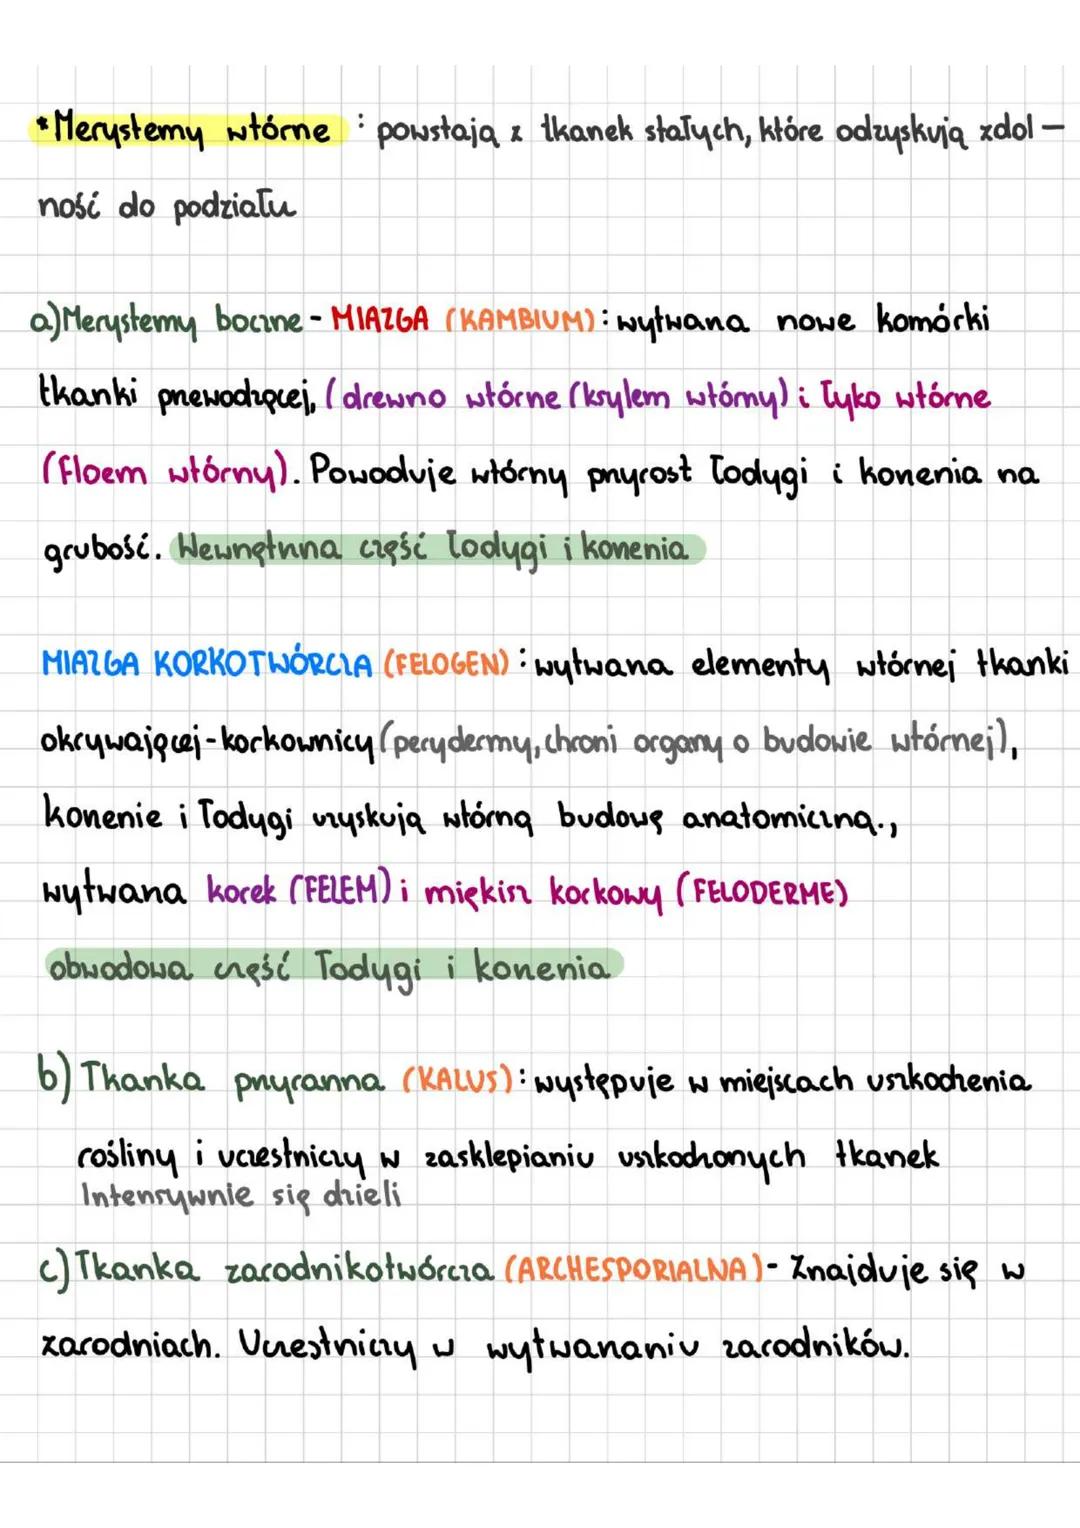 *Merystemy wtórne : powstają z tkanek stałych, które odzyskują zdol-
ność do podziału
a) Merystemy boczne - MIAZGA (KAMBIUM): wytwarza nowe komórki
tkanki przewodzącej, (drewno wtórne (ksylem wtórny) i łyko wtórne
(floem wtórny). Powoduje wtórny przyrost łodygi i korzenia na
grubość. Wewnętrzna część łodygi i korzenia
MIAZGA KORKOTWÓRCZA (FELOGEN): wytwarza elementy wtórnej tkanki
okrywającej - korkownicy (perydermy, chroni organy o budowie wtórnej),
korzenie i łodygi uzyskują wtórną budowę anatomiczną.,
wytwarza korek (FELEM) i miękisz korkowy (FELODERME)
obwodowa część łodygi i korzenia
b) Tkanka przyranna (KALUS): występuje w miejscach uszkodzenia
rośliny i uczestniczy w zasklepianiu uszkodzonych tkanek
Intensywnie się dzieli
c) Tkanka zarodnikotwórcza (ARCHESPORIALNA) - Znajduje się w
zarodniach. Uczestniczy w wytwarzaniu zarodników.